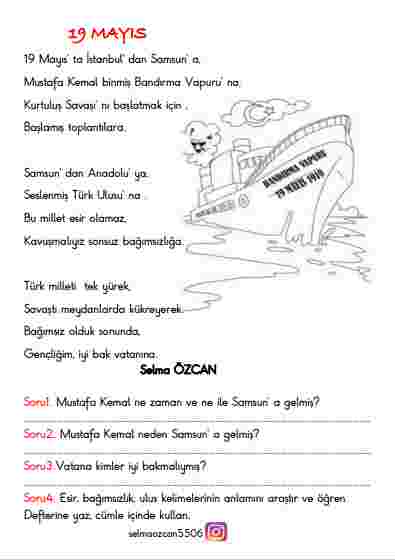 19 MAYIS
19 Mayıs' ta İstanbul' dan Samsun' a,
Mustafa Kemal binmiş Bandırma Vapuru' na;
Kurtuluş Savaşı' nı başlatmak için ,
Başlamış toplantılara.
BANDIRMA VAPURU
19 MAYIS 1919
Samsun' dan Anadolu' ya.
Seslenmiş Türk Ulusu' na .
Bu millet esir olamaz,
Kavuşmalıyız sonsuz bağımsızlığa.
Türk milleti tek yürek,
Savaştı meydanlarda kükreyerek.
Bağımsız olduk sonunda,
Gençliğim, iyi bak vatanına.
Selma ÖZCAN
Soru1. Mustafa Kemal ne zaman ve ne ile Samsun' a gelmiş?
Soru2. Mustafa Kemal neden Samsun' a gelmiş?
Soru3.Vatana kimler iyi bakmalıymış?
Soru4. Esir, bağımsızlık, ulus kelimelerinin anlamını araştır ve öğren.
Defterine yaz, cümle içinde kullan.
selmaozcan5506